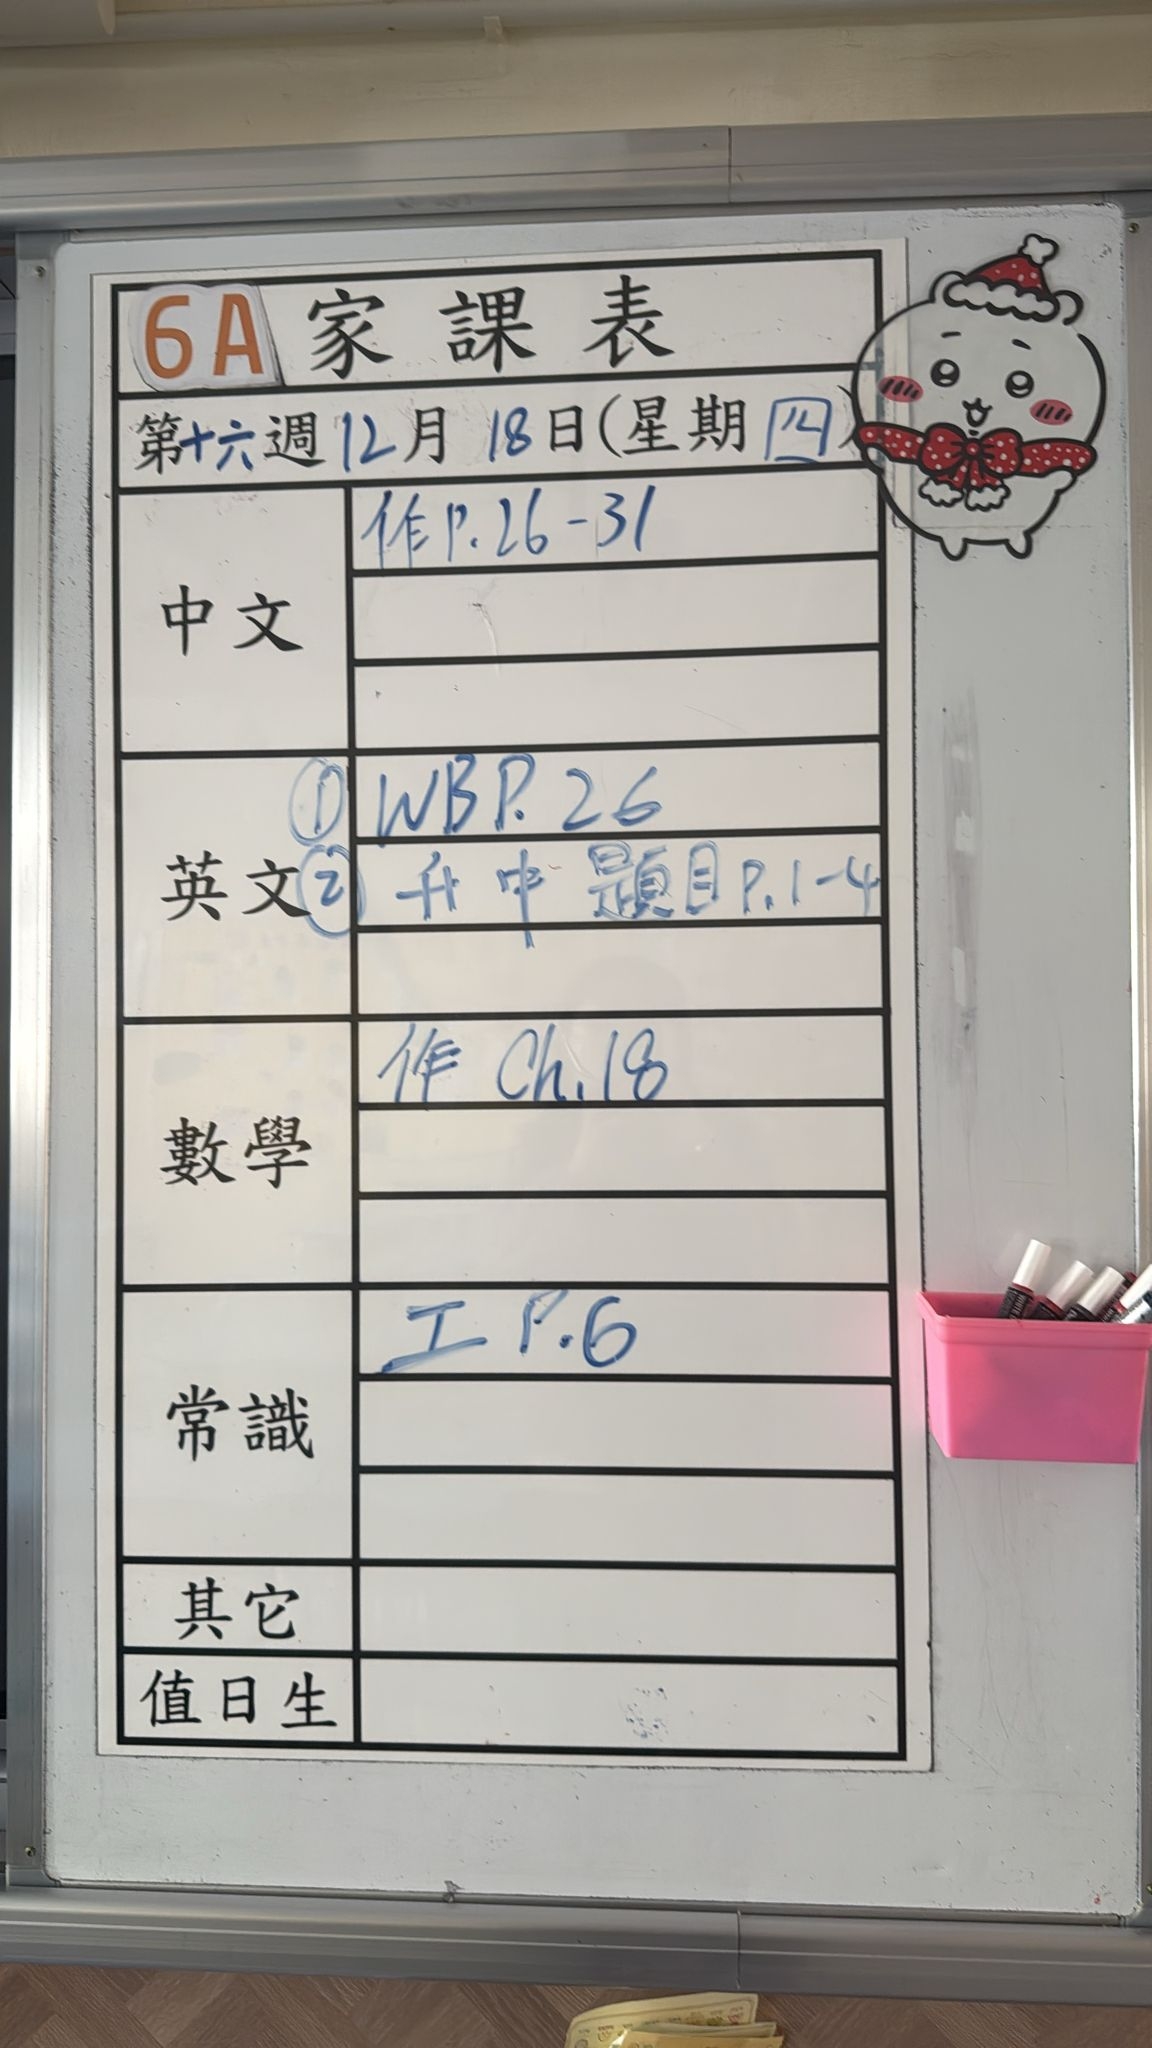 6A 家課表
第十六週12月18日(星期四)
中文
作P.26-31
英文
① WB P.26
② 升中題目P.1-4
數學
作 Ch.18
常識
工 P.6
其它
值日生